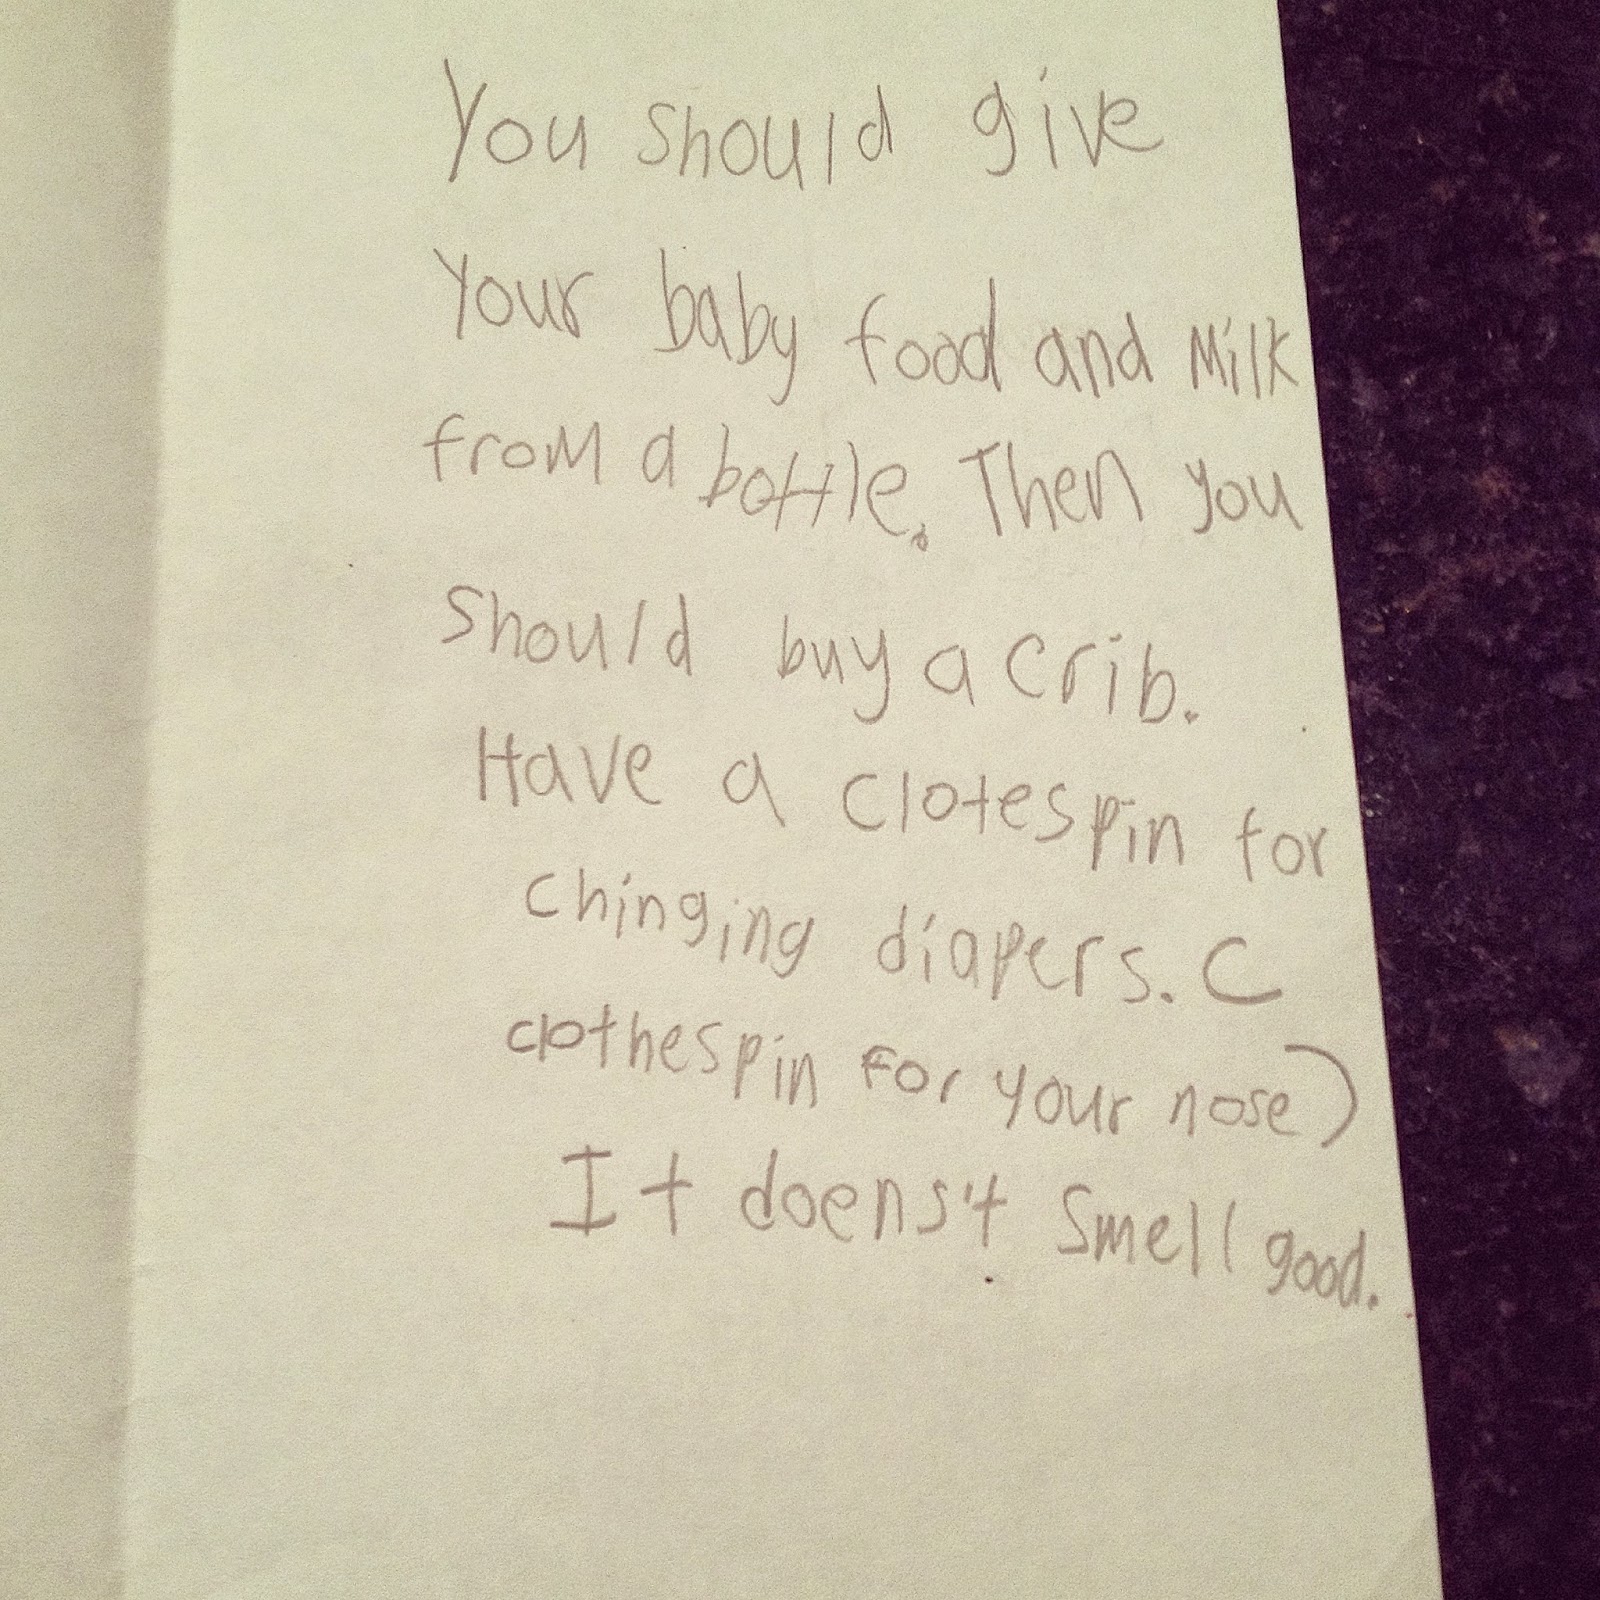 You should give
Your baby food and Milk
from a bottle. Then you
should buy a crib.
Have a clotespin for
chinging diapers. (
clothespin for your nose)
It doens't smell good.